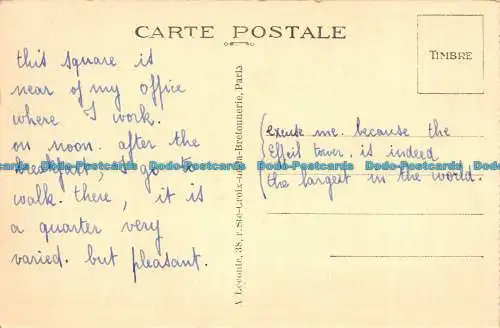 CARTE POSTALE
TIMBRE
this square is
near of my office
where I work.
on noon. after the
breakfast, I go to
walk. there, it is
a quarter very
varied. but pleasant.
A Leconte, 38, r. Ste-Croix-de-la-Bretonnerie, Paris
(excuse me. because the
Effeil tower. is indeed
the largest in the world.
Dodo-Postcards Dodo-Postcards Dodo-Postcards Dodo-Postcards Dodo-Postcards